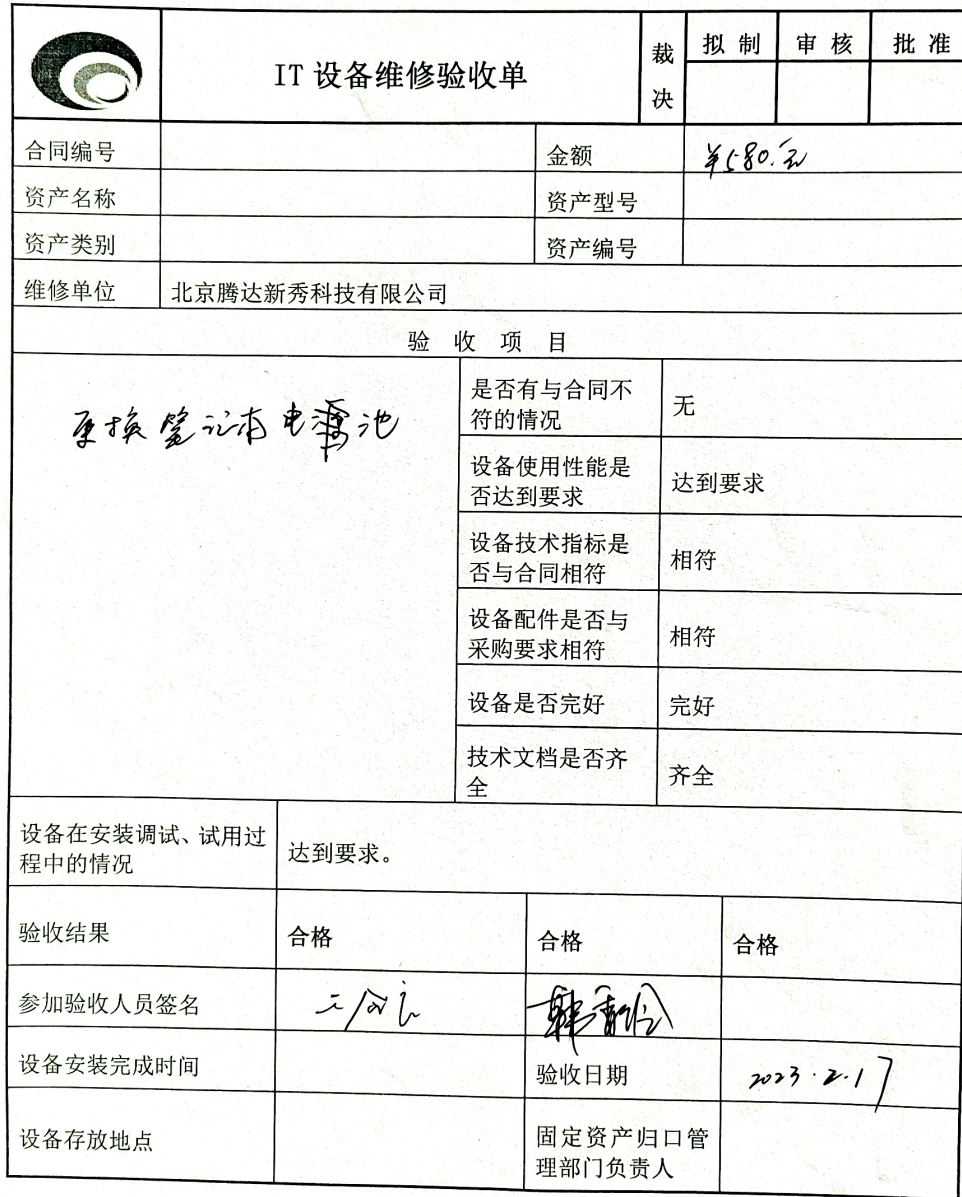 IT 设备维修验收单
裁决
拟 制
审 核
批 准
合同编号
金额
¥580.元
资产名称
资产型号
资产类别
资产编号
维修单位
北京腾达新秀科技有限公司
验 收 项 目
更换笔记本电池
是否有与合同不
符的情况
无
设备使用性能是
否达到要求
达到要求
设备技术指标是
否与合同相符
相符
设备配件是否与
采购要求相符
相符
设备是否完好
完好
技术文档是否齐
全
齐全
设备在安装调试、试用过
程中的情况
达到要求。
验收结果
合格
合格
合格
参加验收人员签名
设备安装完成时间
验收日期
2023.2.17
设备存放地点
固定资产归口管
理部门负责人